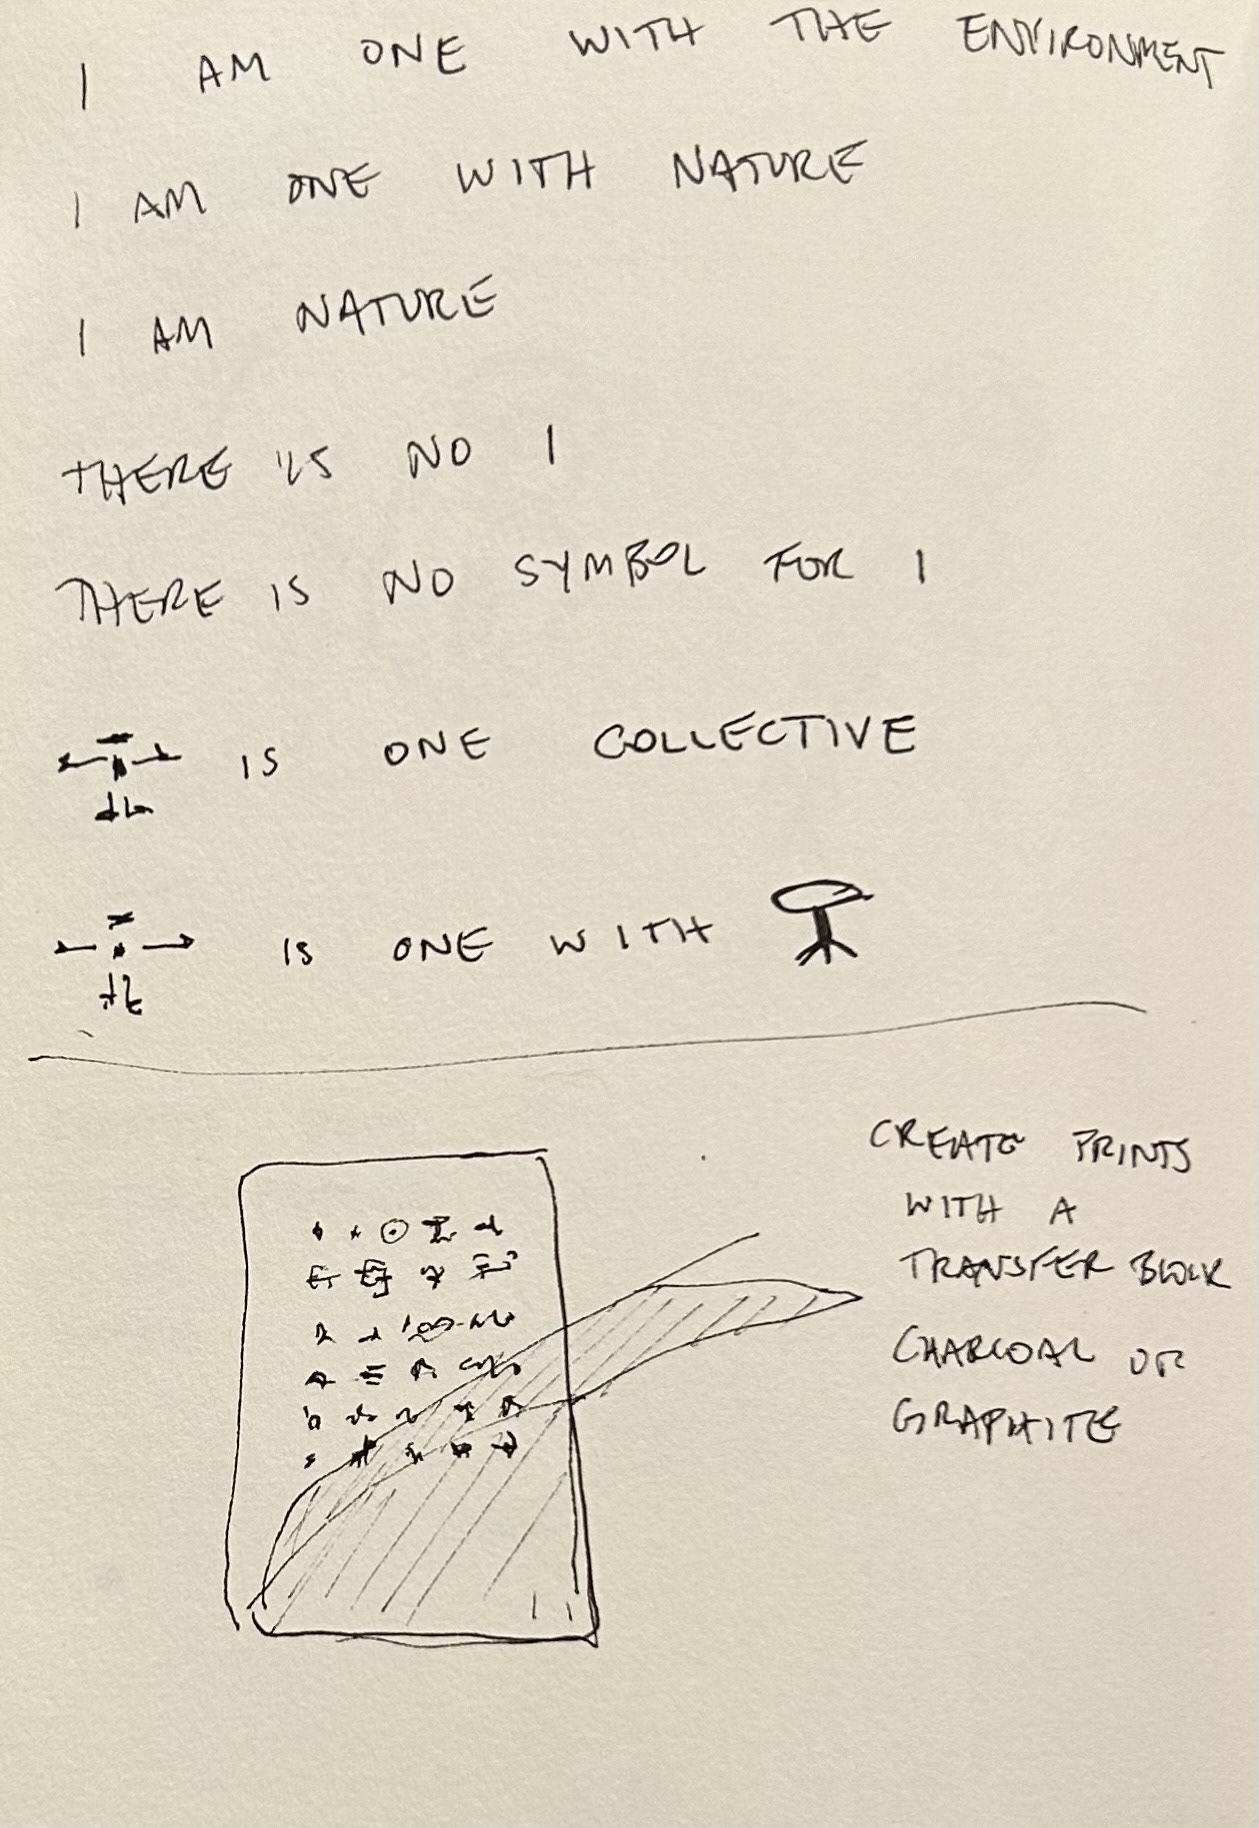 I AM ONE WITH THE ENVIRONMENT
I AM ONE WITH NATURE
I AM NATURE
THERE IS NO I
THERE IS NO SYMBOL FOR I
IS ONE COLLECTIVE
IS ONE WITH
CREATE PRINTS
WITH A
TRANSFER BLOCK
CHARCOAL OR
GRAPHITE